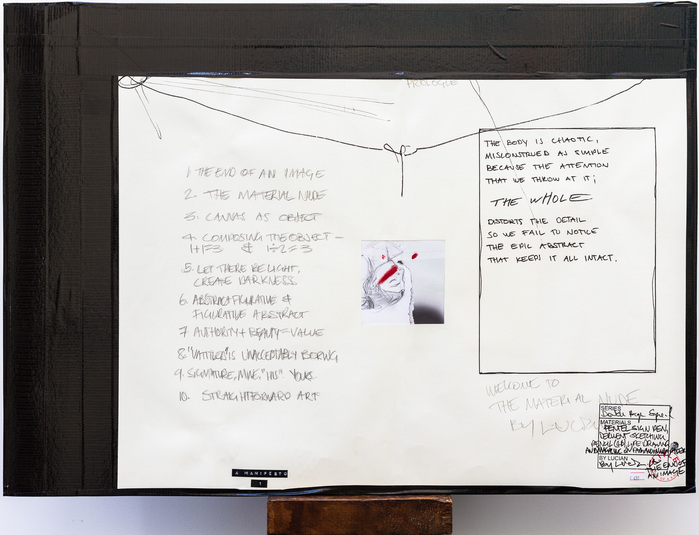 PROLOGUE
1. THE END OF AN IMAGE
2. THE MATERIAL NUDE
3. CANVAS AS OBJECT
4. COMPOSING THE OBJECT –
1+1=3 & 1÷2=3
5. LET THERE BE LIGHT,
CREATE DARKNESS.
6. ABSTRACT FIGURATIVE &
FIGURATIVE ABSTRACT
7 AUTHORITY + BEAUTY = VALUE
8. IS UNACCEPTABLY BORING
9. SIGNATURE, MINE, "HIS" YOURS
10. STRAIGHTFORWARD ART
THE BODY IS CHAOTIC,
MISCONSTRUED AS SIMPLE
BECAUSE THE ATTENTION
THAT WE THROW AT IT;
THE WHOLE
DISTORTS THE DETAIL
SO WE FAIL TO NOTICE
THE EPIC ABSTRACT
THAT KEEPS IT ALL INTACT.
WELCOME TO
THE MATERIAL NUDE
By
SERIES
MATERIALS
PENTEL SIGN PEN,
BY LUCIAN
THE END OF
AN IMAGE
A MANIFESTO
1